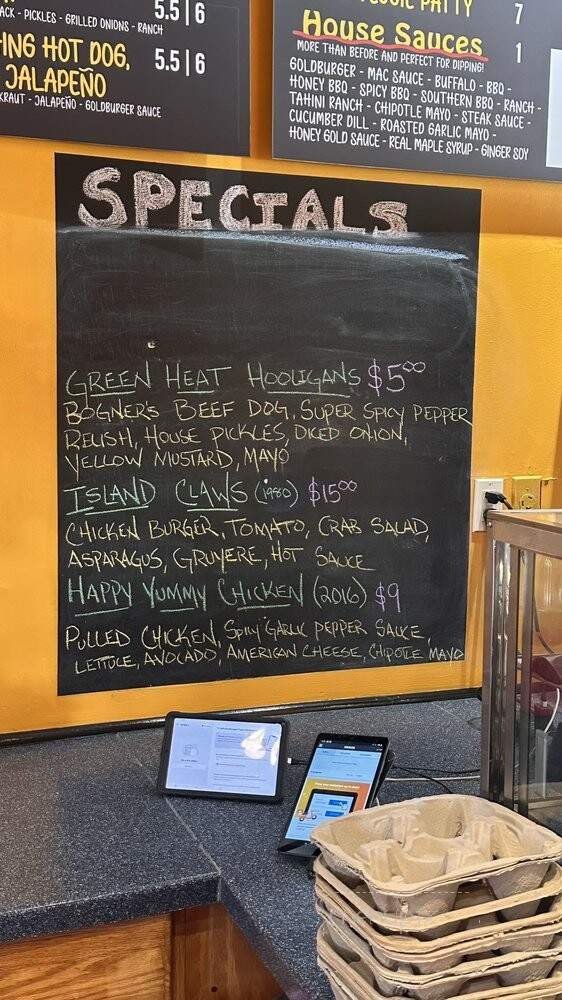 5.5|6
ACK - PICKLES - GRILLED ONIONS - RANCH
ING HOT DOG,
5.5|6
JALAPEÑO
KRAUT - JALAPEÑO - GOLDBURGER SAUCE
PATTY
7
House Sauces
1
MORE THAN BEFORE AND PERFECT FOR DIPPING!
GOLDBURGER - MAC SAUCE - BUFFALO - BBQ -
HONEY BBQ - SPICY BBQ - SOUTHERN BBQ - RANCH -
TAHINI RANCH - CHIPOTLE MAYO - STEAK SAUCE -
CUCUMBER DILL - ROASTED GARLIC MAYO -
HONEY GOLD SAUCE - REAL MAPLE SYRUP - GINGER SOY
SPECIALS
GREEN HEAT HOOLIGANS $5.00
BOGNER'S BEEF DOG, SUPER SPICY PEPPER
RELISH, HOUSE PICKLES, DICED ONION,
YELLOW MUSTARD, MAYO
ISLAND CLAWS (1980) $15.00
CHICKEN BURGER, TOMATO, CRAB SALAD,
ASPARAGUS, GRUYERE, HOT SAUCE
HAPPY YUMMY CHICKEN (2016) $9
PULLED CHICKEN, SPICY GARLIC PEPPER SAUCE,
LETTUCE, AVOCADO, AMERICAN CHEESE, CHIPOTLE MAYO